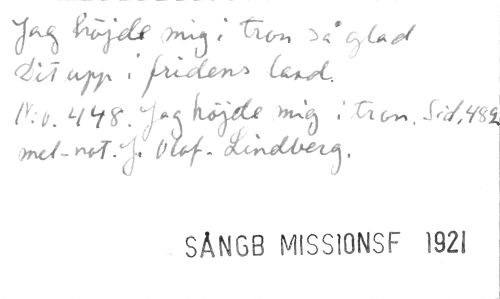 Jag höjde mig i tron så glad
Dit upp i fridens land.
N:o. 448. Jag höjde mig i tron. Sid. 482
mel-not. J. Olof. Lindberg.
SÅNGB MISSIONSF 1921